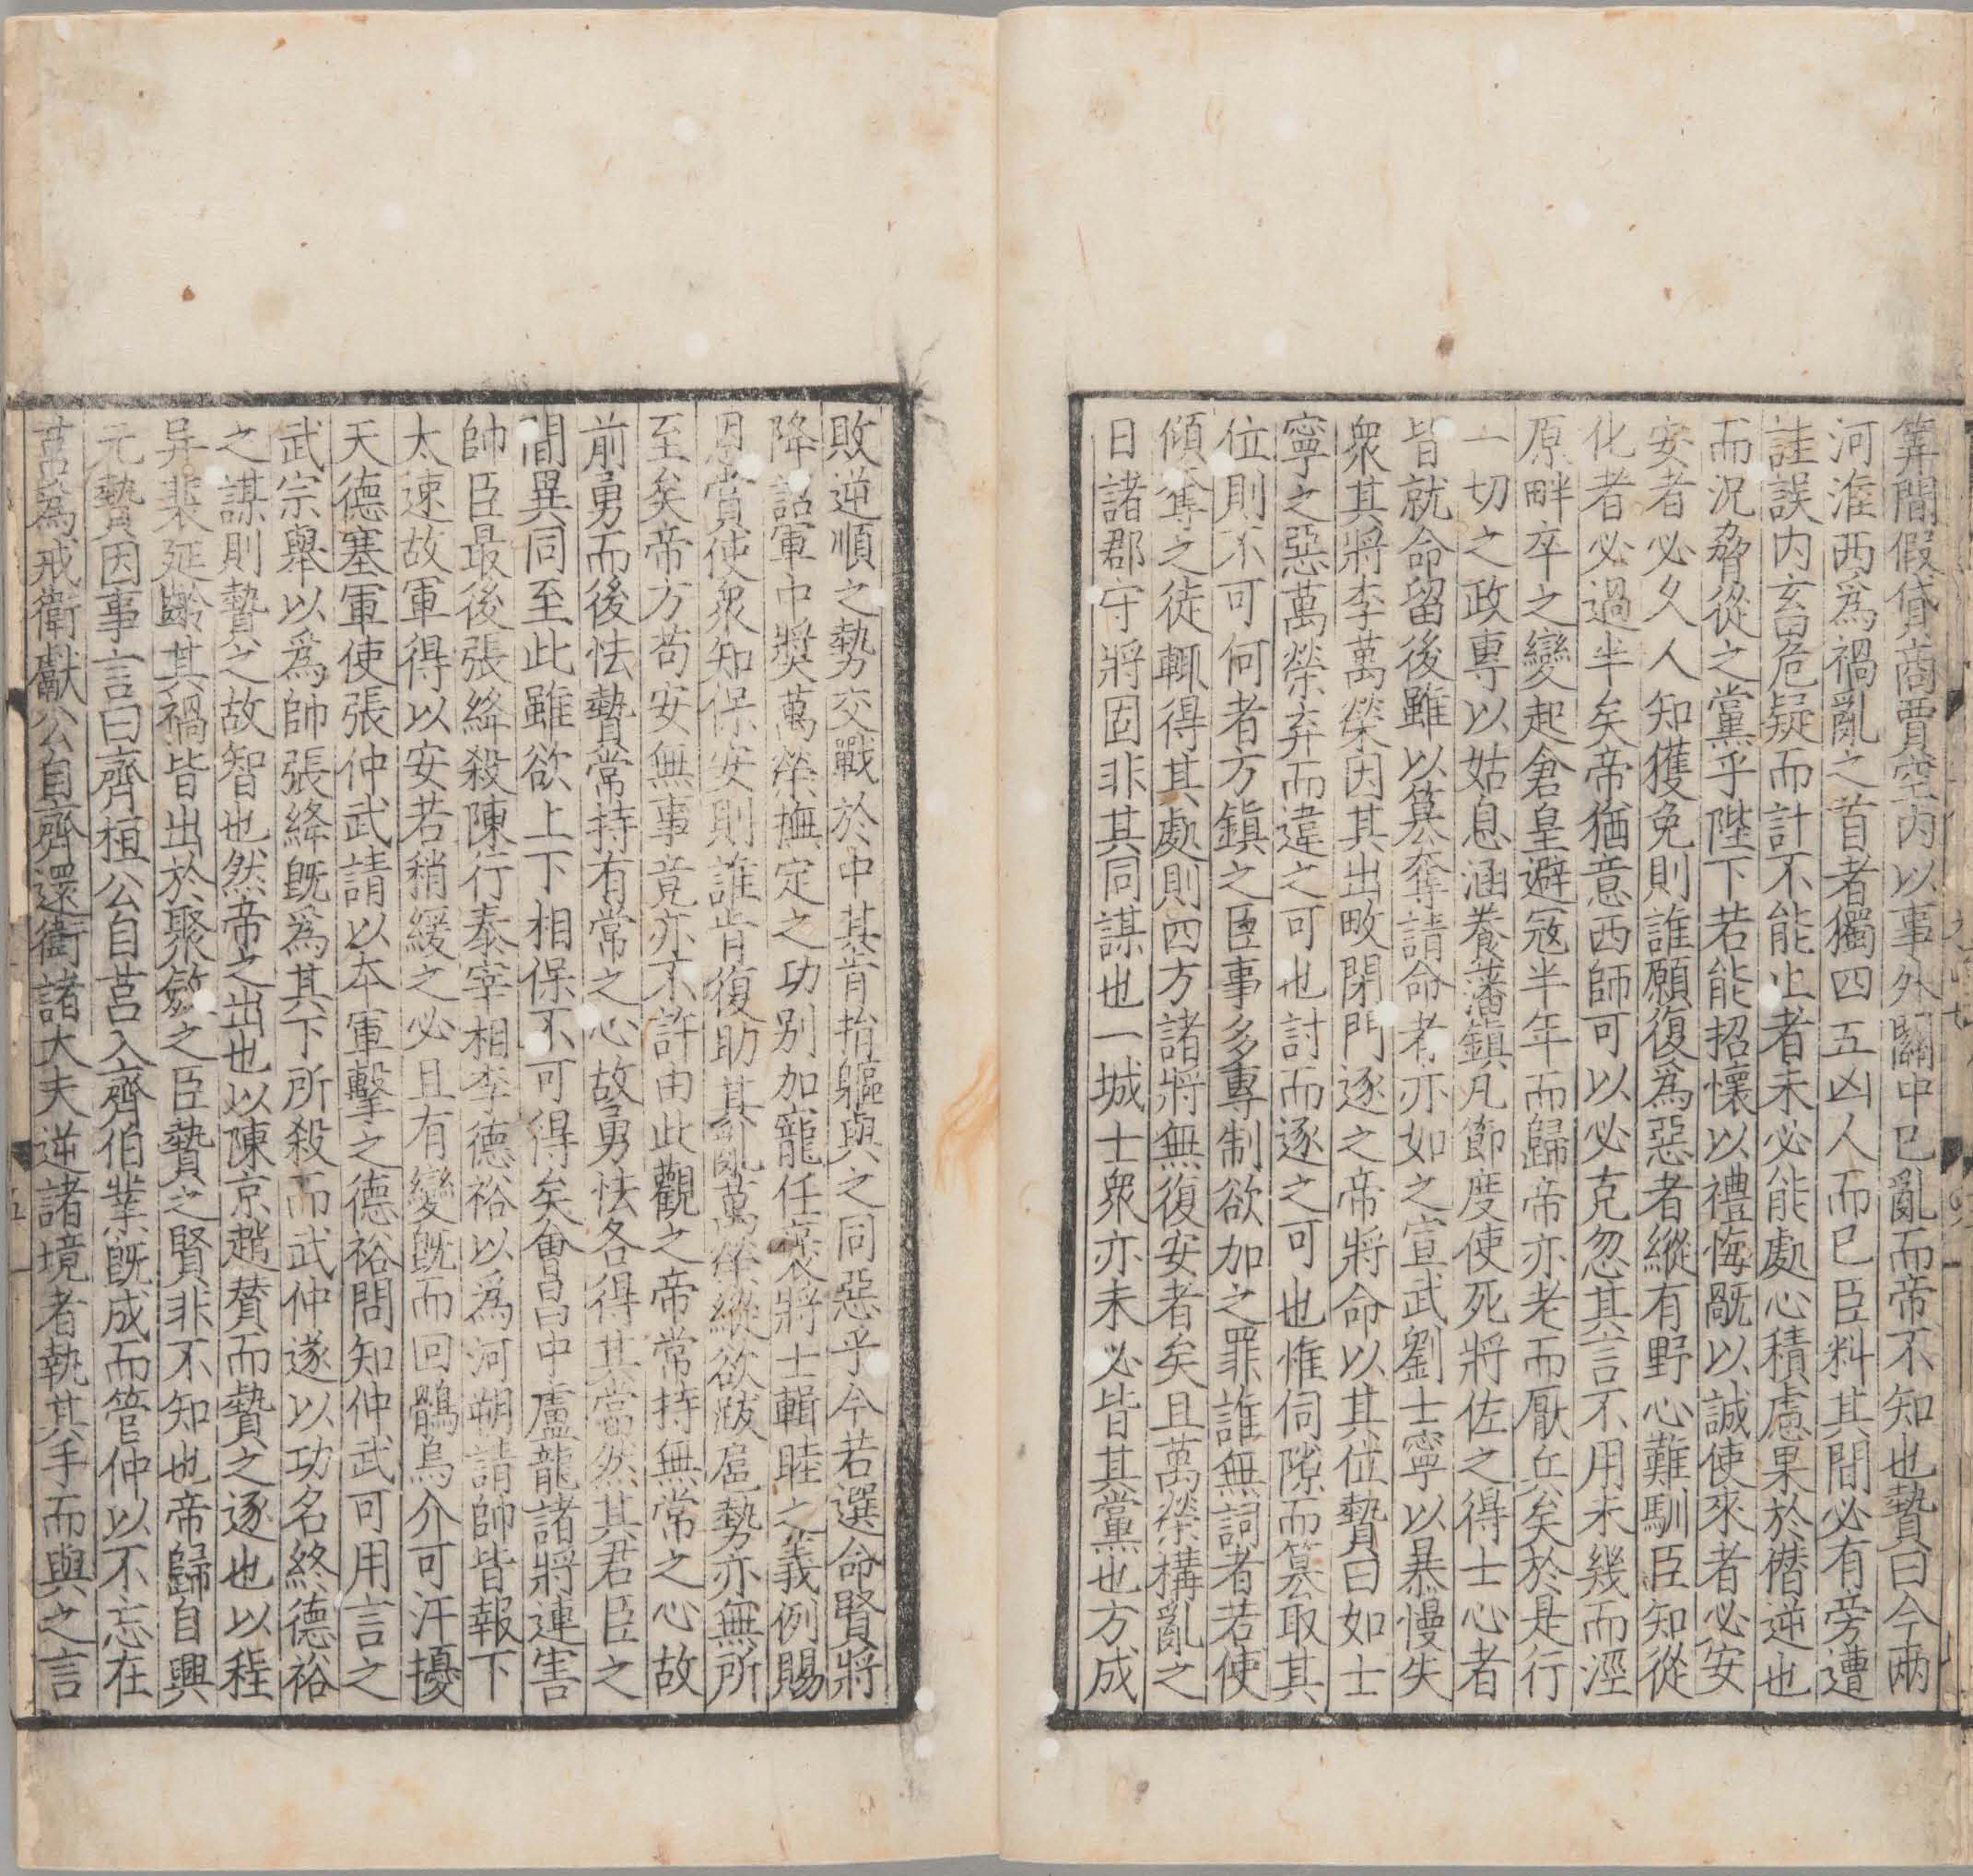 筭間假貸商賈空内以事外關中已亂而帝不知也贄曰今兩
河淮西爲禍亂之首者獨四五凶人而已臣料其間必有旁遭
詿誤内玄危疑而計不能止者未必能處心積慮果於僭逆也
而况脅從之黨乎陛下若能招懷以禮悔既以誠使來者必安
安者必久人知獲免則誰願復爲惡者縱有野心難馴臣知從
化者必過半矣帝猶意西師可以必克忽其言不用未幾而涇
原畔卒之變起倉皇避寇半年而歸帝亦老而厭兵矣於是行
一切之政專以姑息涵養藩鎮凡節度使死將佐之得士心者
皆就命留後雖以篡奪請命者亦如之宣武劉士寧以暴慢失
衆其將李萬榮因其出畋閉門逐之帝將命以其位贄曰如士
寧之惡萬榮弃而違之可也討而逐之可也惟伺隙而篡取其
位則不可何者方鎮之臣事多專制欲加之罪誰無詞者若使
傾奪之徒輒得其處則四方諸將無復安者矣且萬榮構亂之
日諸郡守將固非其同謀也一城士衆亦未必皆其黨也方成
敗逆順之勢交戰於中其肯捐軀與之同惡乎今若選命賢將
降詔軍中奬萬榮撫定之功別加寵任襃將士輯睦之義例賜
恩賞使衆知保安則誰肯復助其亂萬榮縱欲跋扈勢亦無所
至矣帝方苟安無事竟亦不許由此觀之帝常持無常之心故
前勇而後怯贄常持有常之心故勇怯各得其當然其君臣之
間異同至此雖欲上下相保不可得矣會昌中盧龍諸將連害
帥臣最後張絳殺陳行泰宰相李德裕以爲河朔請帥皆報下
太速故軍得以安若稍緩之必且有變既而回鶻烏介可汗擾
天德塞軍使張仲武請以本軍擊之德裕問知仲武可用言之
武宗舉以爲帥張絳既爲其下所殺而武仲遂以功名終德裕
之謀則贄之故智也然帝之出也以陳京趙賛而贄之逐也以程
异裴延齡其禍皆出於聚斂之臣贄之賢非不知也帝歸自興
元贄因事言曰齊桓公自莒入齊伯業既成而管仲以不忘在
莒爲戒衛獻公自齊還衛諸大夫逆諸境者執其手而與之言